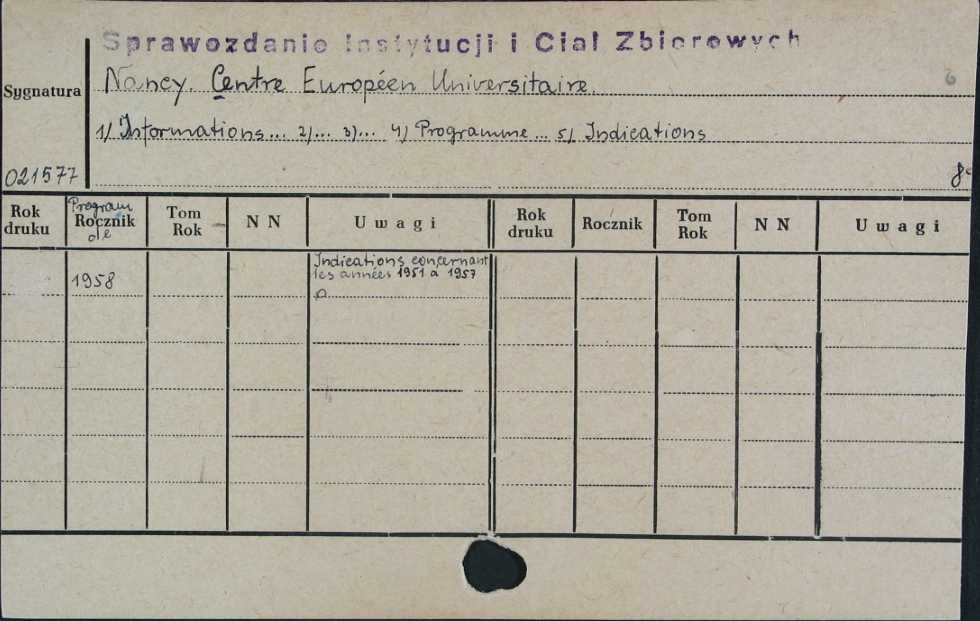 Sprawozdanie Instytucji i Ciał Zbiorowych
6
Sygnatura
Nancy. Centre Européen Universitaire.
1/ Informations... 2/... 3/... 4/ Programme... 5/ Indications
021577
8°
Rok druku
Program Rocznik de
Tom Rok
N N
Uwagi
Rok druku
Rocznik
Tom Rok
N N
Uwagi
1958
Indications concernant
les années 1951 à 1957